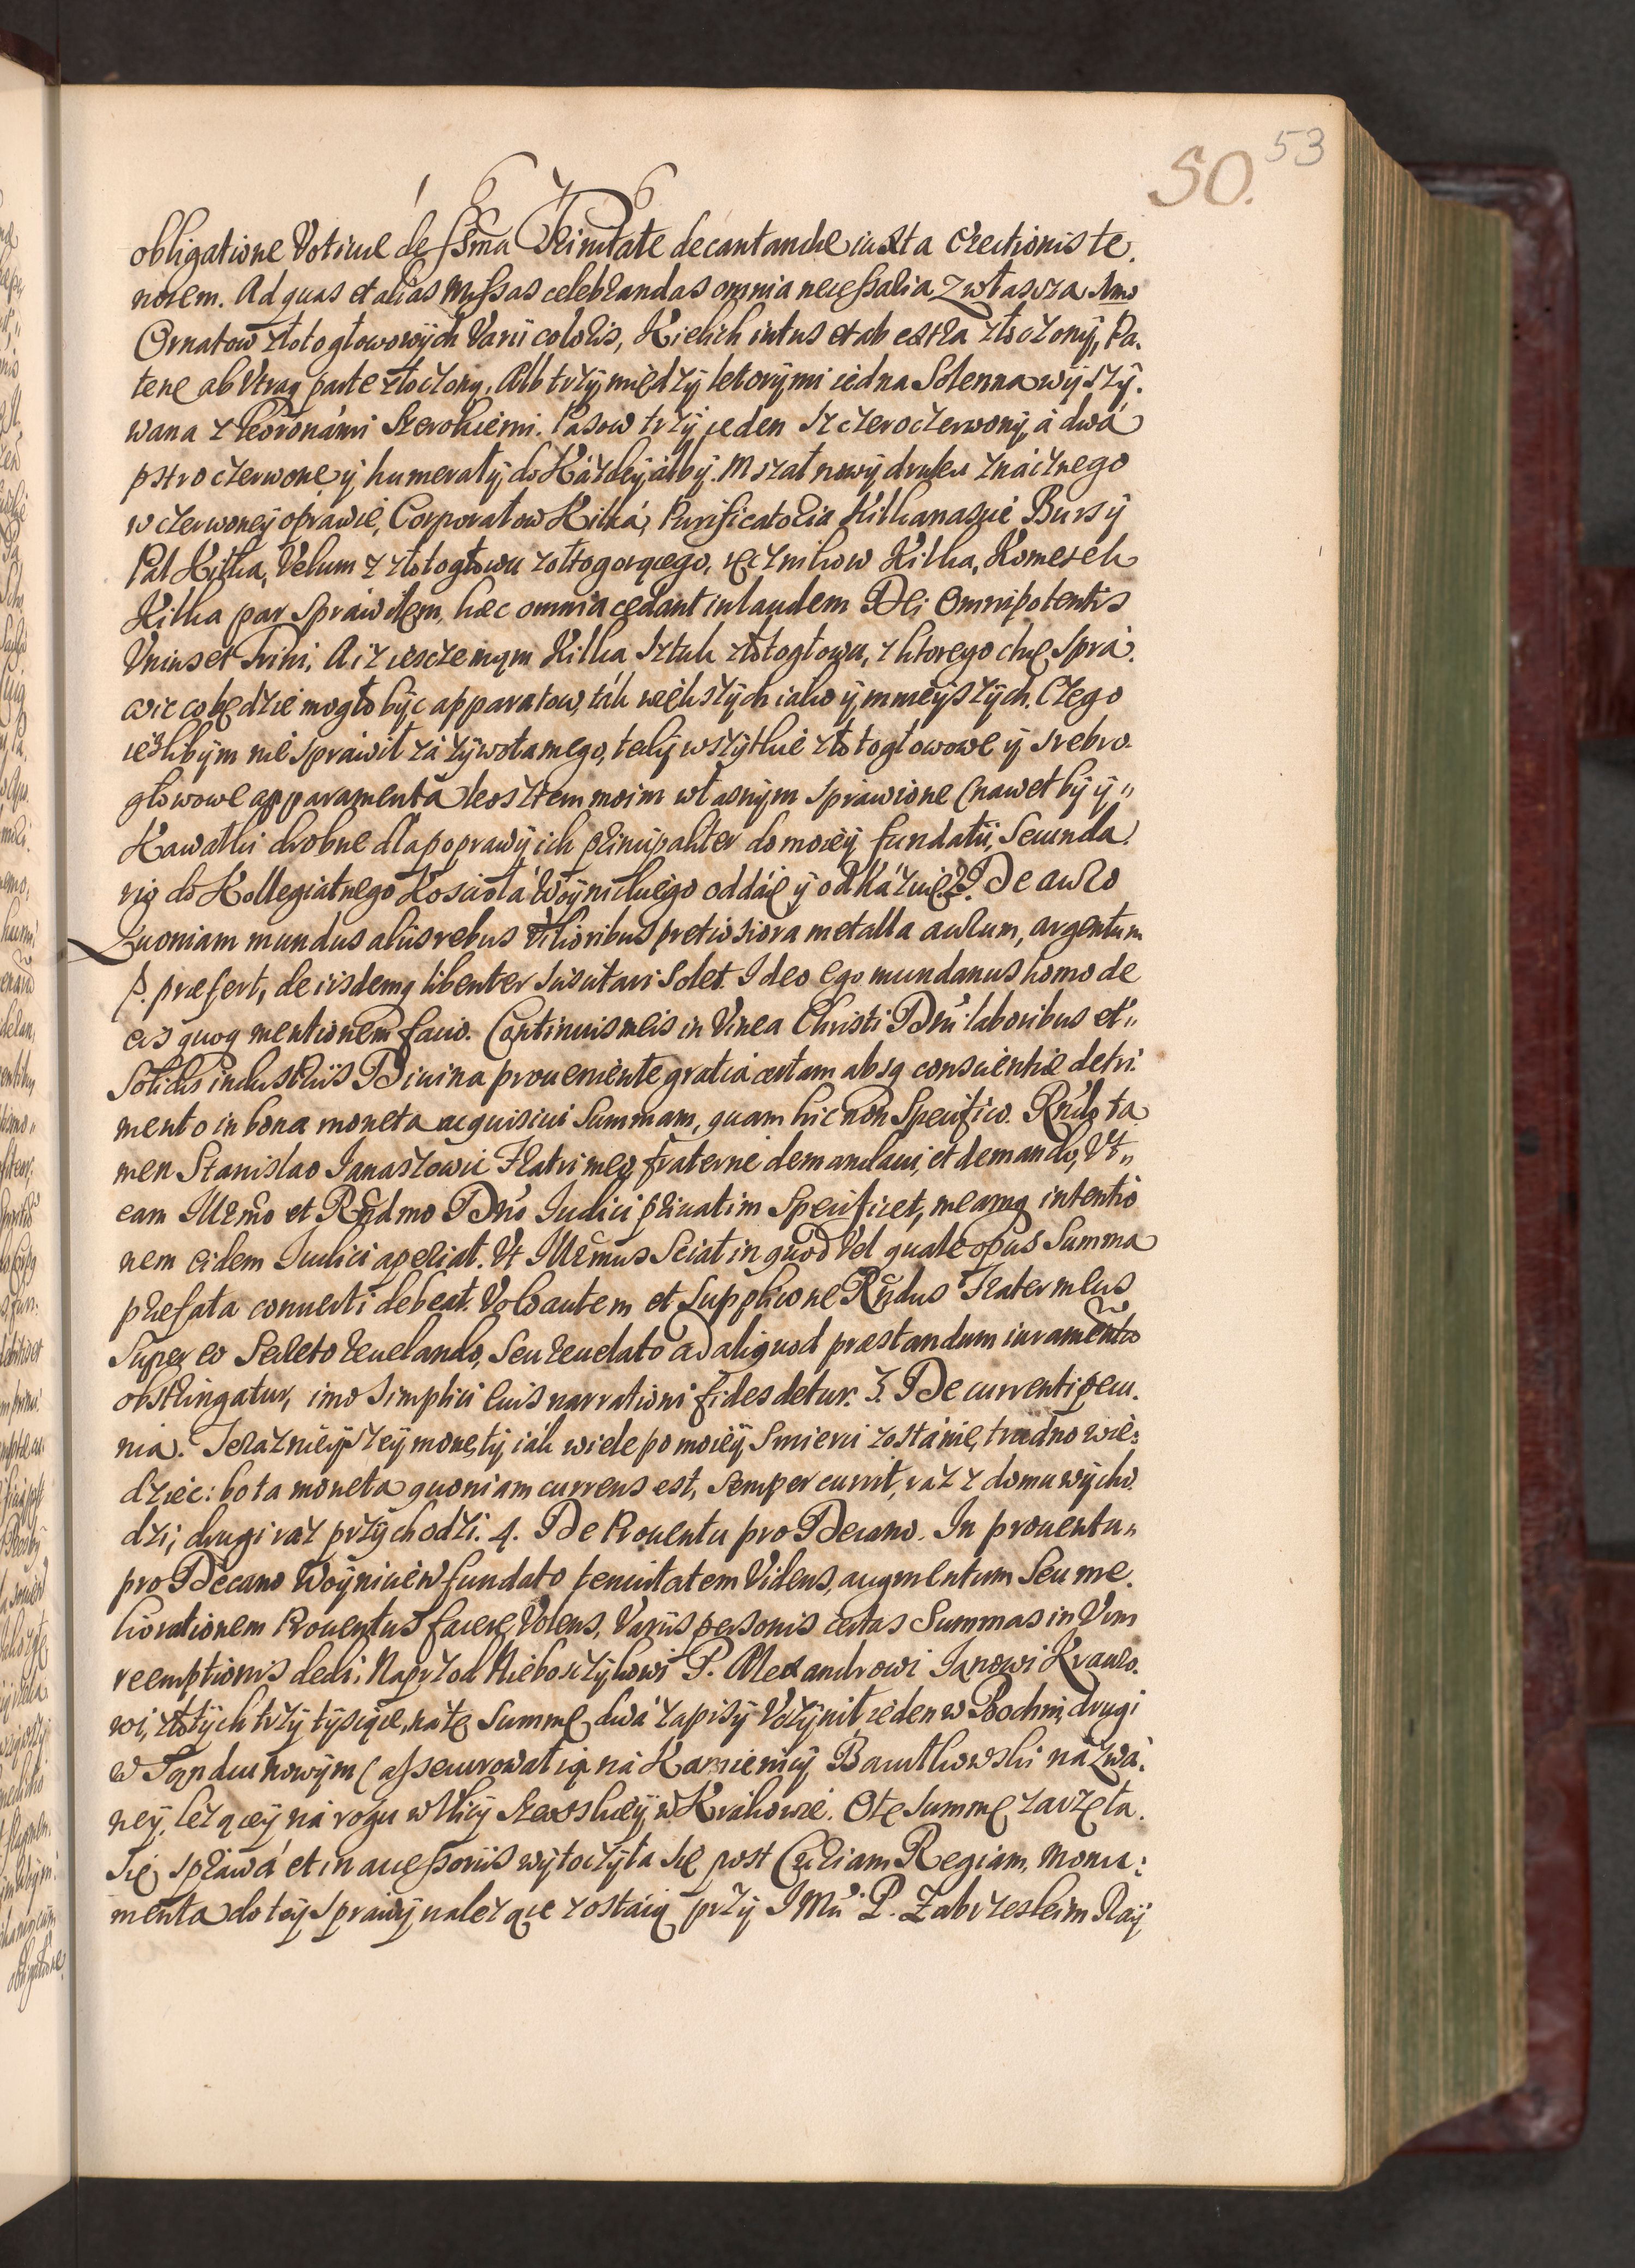 53
50.
1 6 7 6
obligatione Votivæ de ssma Trinitate decantandæ iuxta erectionis te.
norem. Ad quas et alias Missas celebrandas omnia necessaria zwłaszcza
Ornatow złotogłowowÿch Varii coloris, Kielich intus et ab extra złoczonÿ, Pa.
tenę ab Vtraq parte złoczoną, Alb trzÿ międzÿ ktorÿmi iedna Solenna wÿszÿ.
wana z Koronámi Szerokiemi. Pasow trzÿ jeden Szczeroczerwonÿ, á dwá
pstroczerwone ÿ humeratÿ do Káżdeÿ álbÿ. Mszał nowÿ druku znácznego
w czerwoneÿ oprawie, Corporałow Kilká, Purificatoria Kilkanascie Bursÿ
Pal Kilka, Velum z złotogłowu żołtogorącego, ręcznikow Kilka, Komeżek
Kilka par Sprawiłem, hæc omnia cedant in laudem Dei Omnipotentis
Vnius et Trini. A iż iescze mąm Kilka Sztuk złotogłowu, z ktorego chcę Sprá.
wic co będzie mogło bÿc apparatow, ták większÿch iako ÿ mnieÿszÿch. Czego
ieslibÿm nie Sprawił zá żÿwota mego, tedÿ wszÿtkie złotogłowowe ÿ srebro.
głowowe apparamenta kosztem moim własnÿm Sprawione (nawet bÿ ÿ„
Kawałki drobne dla poprawÿ ich principaliter do moieÿ fundatii, Secunda.
rio do Kollegiatnego Koscioła Woÿnickiego oddáię ÿ odkázuię. 2. De auro
Quoniam mundus aliis rebus Vilioribus pretiosiora metalla aurum, argentum
p. præfert, de iisdemq libenter Suscitari Solet. Ideo ego mundanus homo de
eis quoq mentionem facio. Continuis meis in Vinea Christi Dni laboribus et„
Solidis industriis Diuina proueniente gratia certam absq conscientiæ detri.
mento in bona moneta acquisiui Summam, quam hic non Specifico. Rndo ta
men Stanislao Janaszowic Fratri meo fraterne demandaui, et demando, Vt„
eam Illrmo et Rndmo Dno Iudici priuatim Specificet, meamq intentio
nem eidem Iudici aperiat. Vt Illrmus Sciat in quod Vel quale opus Summa
præfata conuerti debeat. Volo autem et Supplico ne Rndus Frater meus
Super eo Secreto reuelando, Seu reuelato ad aliquod præstandum iuramentũ
obstringatur, imo Simplici eius narrationi fides detur. 3. De currenti pecu.
nia. Terazniéÿszeÿ monetÿ iák wiele po moieÿ Smierci zostánie, trudno wie:
dziec: bo ta moneta quoniam currens est, semper currit, raz z domu wÿcho
dzi, drugi raz przÿchodzi. 4. De Prouentu pro Decano. In prouentu„
pro Decano Woÿnicien fundato tenuitatem Videns, augmentum Seu me.
liorationem Prouentus facere Volens, Variis personis certas Summas in Vim
reemptionis dedi. Naprzod Nieboszczÿkowi P. Alexandrowi Janowi Krauzo.
wi, złotÿch trzÿ tÿsiące, ná tę Summę dwá zapisÿ Vczÿnił, ieden w Bochni, drugi
w Sąndcu nowÿm (assecurował ią ná Kamienicÿ Bauthowski názwá:
neÿ, leżąceÿ ná rogu w Vlicÿ Szewskieÿ w Krákowie. O tę Summę zaczęła
się sprawá et in accessoriis wÿtoczÿła się post Curiam Regiam, monu:
menta do teÿ Sprawÿ należące zostaią przÿ IMci P. Zabrzeskim Raÿ